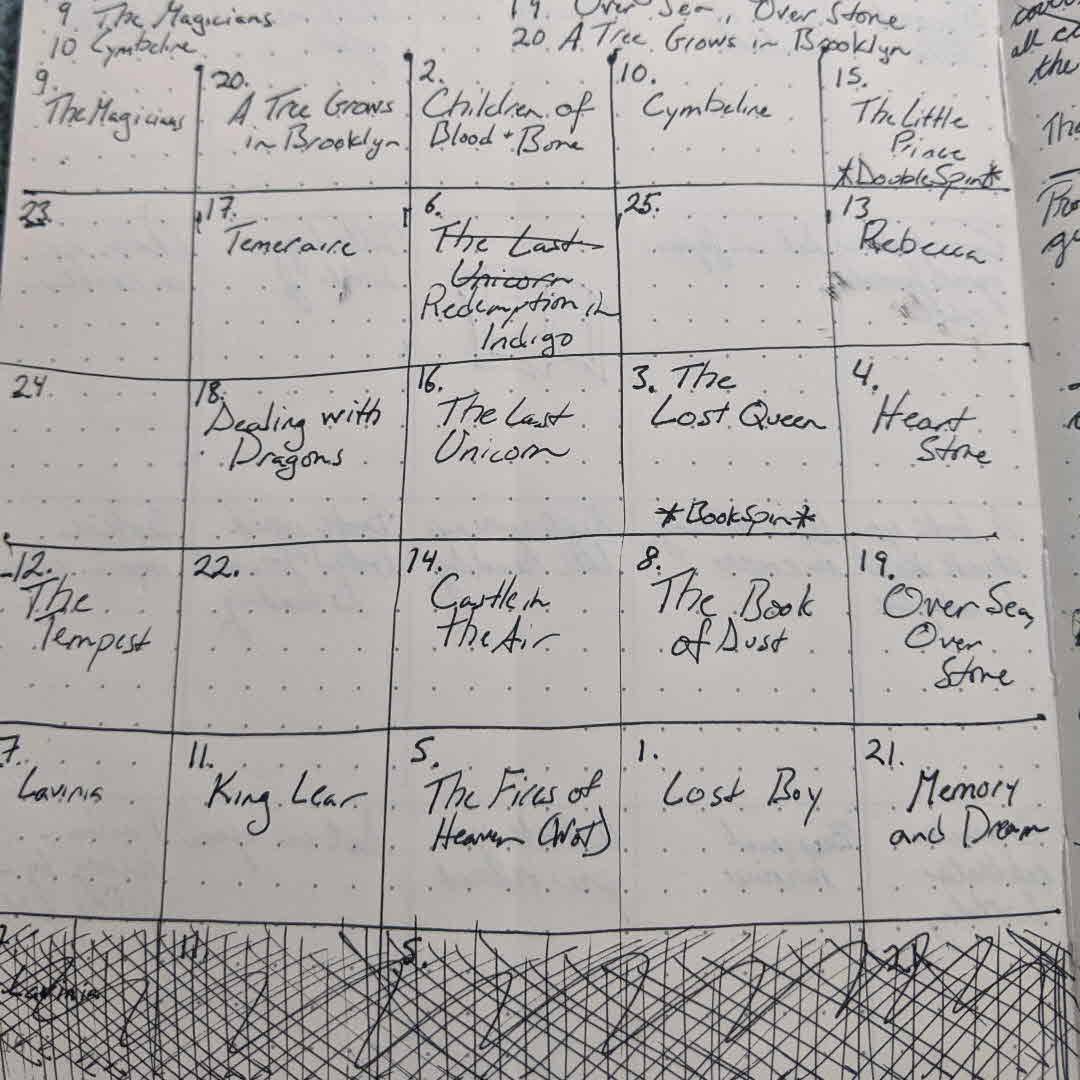 9. The Magicians
19. Over Sea, Over Stone
10 Cymbeline
20 A Tree Grows in Brooklyn
all
the
9.
The Magicians
20.
A Tree Grows
in Brooklyn
2.
Children of
Blood + Bone
10.
Cymbeline
15.
The Little
Prince
*DoubleSpin*
23.
17.
Temeraire
6.
The Last
Unicorn
Redemption in
Indigo
25.
13.
Rebecca
24.
18.
Dealing with
Dragons
16.
The Last
Unicorn
3. The
Lost Queen
*BookSpin*
4.
Heart
Stone
12.
The
Tempest
22.
14.
Castle in
the Air
8.
The Book
of Dust
19.
Over Sea,
Over
Stone
7.
Lavinia
11.
King Lear
5.
The Fires of
Heaven (WoT)
1.
Lost Boy
21.
Memory
and Dream
11.
5.
Lavinia